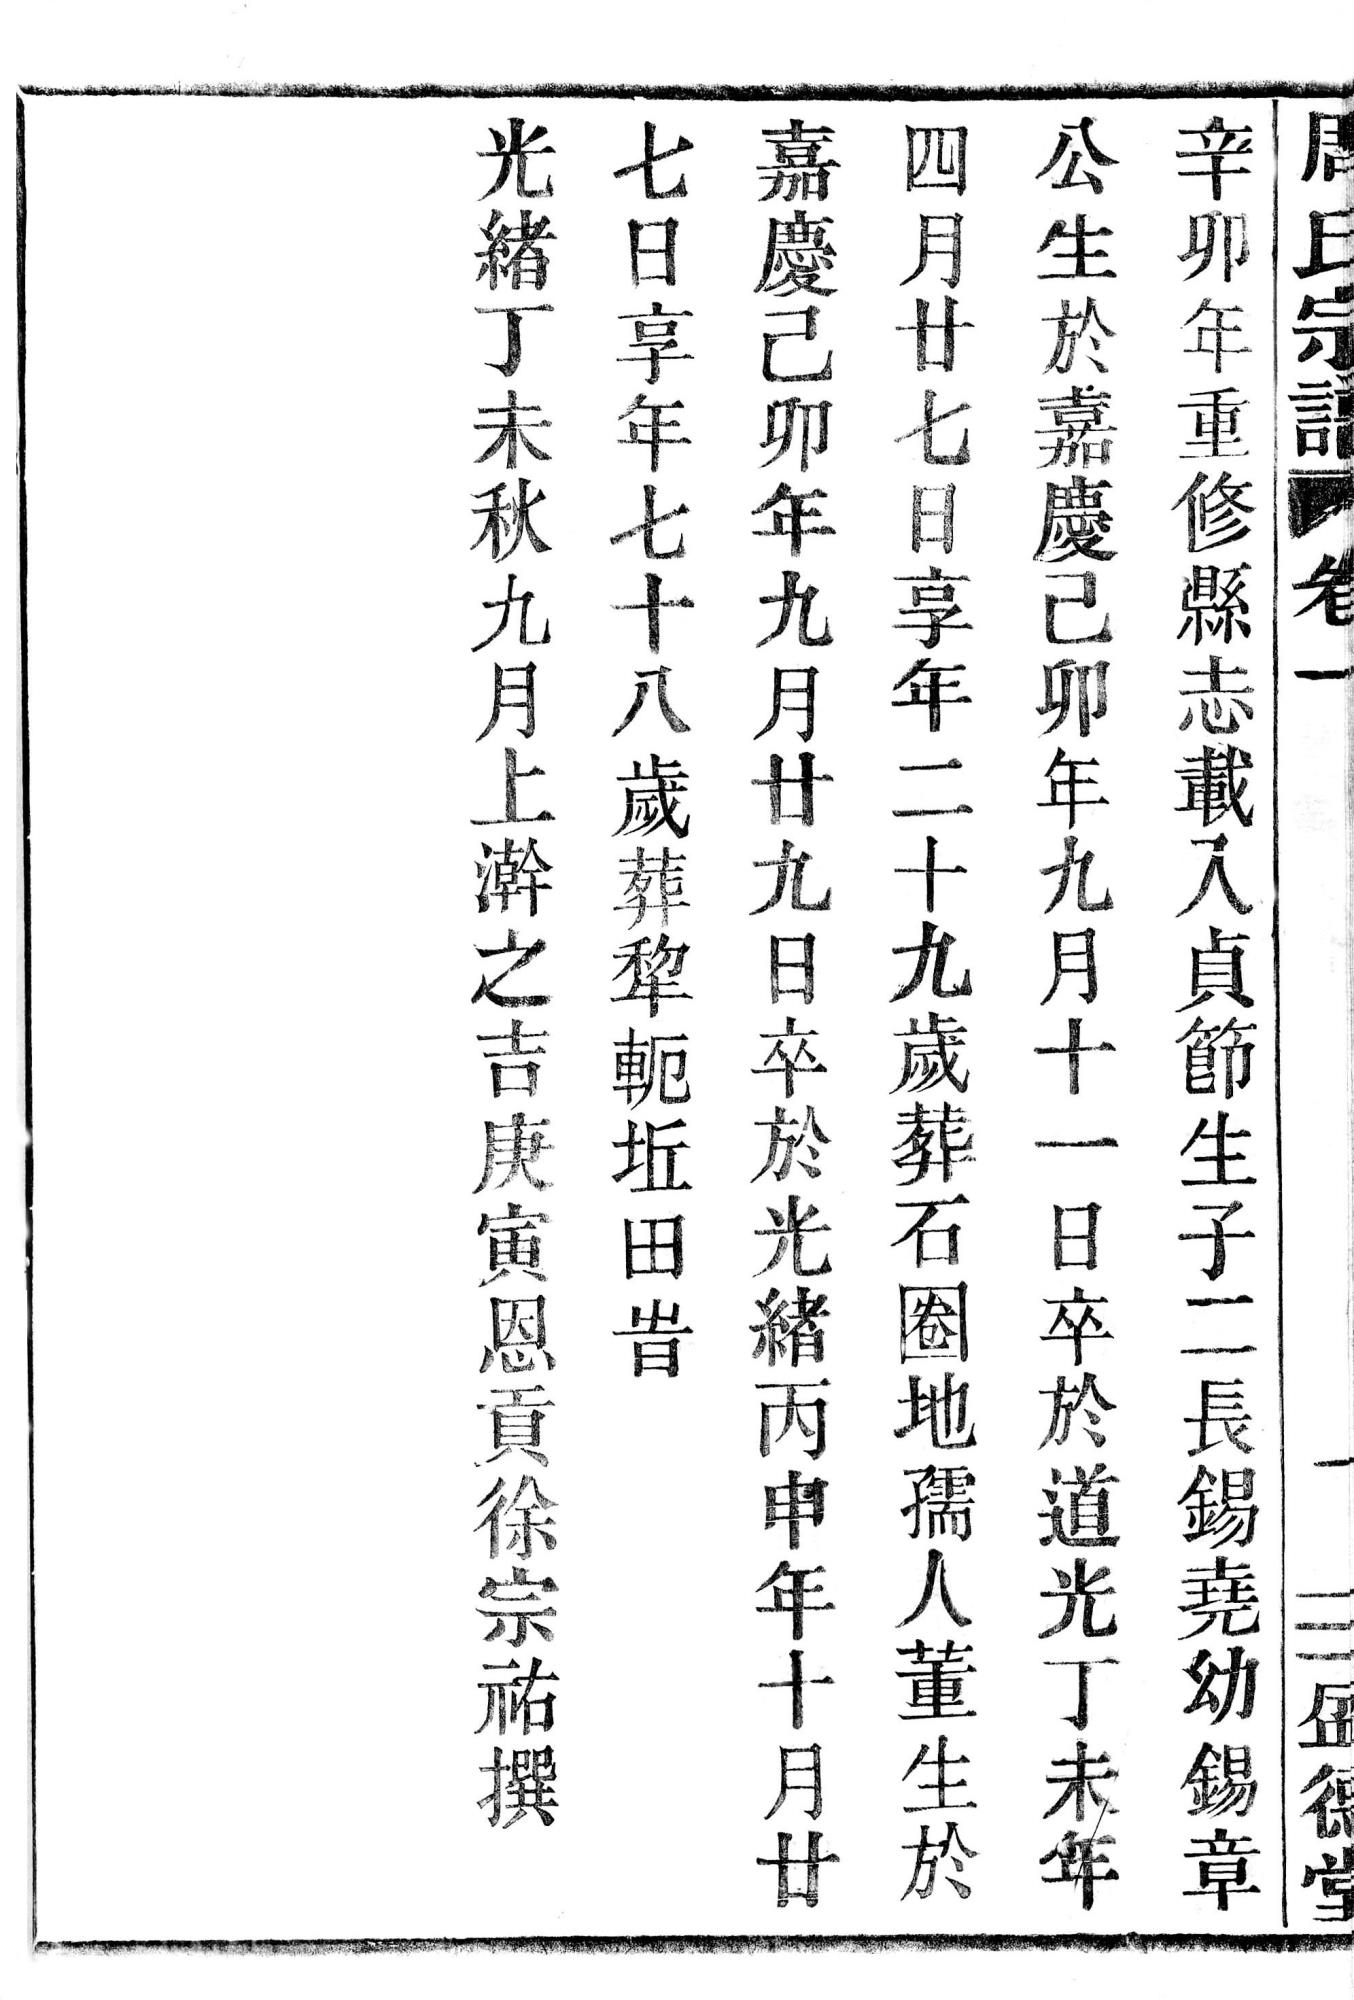 周氏宗譜 卷一 十三 盛德堂
辛卯年重修縣志載入貞節生子二長錫堯幼錫章
公生於嘉慶己卯年九月十一日卒於道光丁未年
四月廿七日享年二十九歲葬石圈地孺人董生於
嘉慶己卯年九月廿九日卒於光緒丙申年十月廿
七日享年七十八歲葬犂軛坵田旹
光緒丁未秋九月上澣之吉庚寅恩貢徐宗祐撰